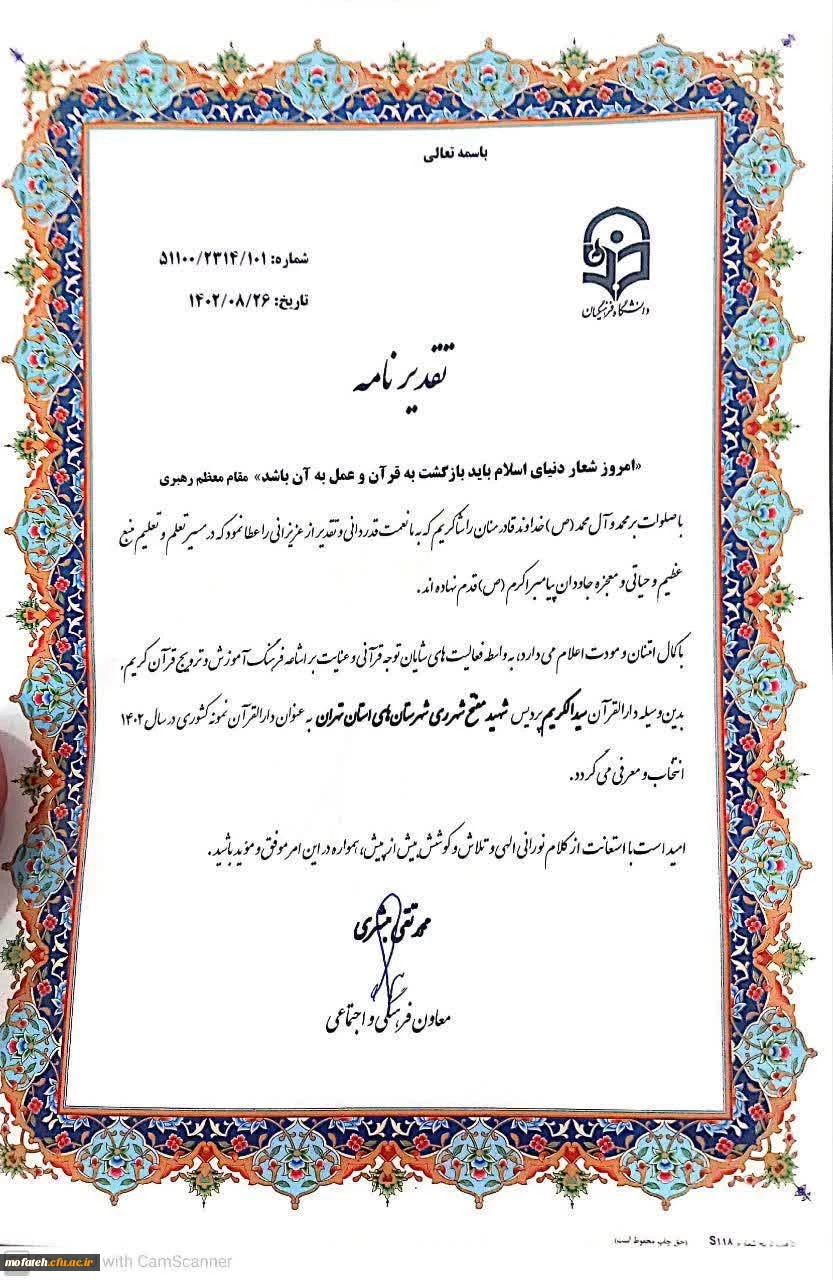 باسمه تعالی
دانشگاه فرهنگیان
شماره: ۵۱۱۰۰/۲۳۱۴/۱۰۱
تاریخ: ۱۴۰۲/۰۸/۲۶
تقدیر نامه
«امروز شعار دنیای اسلام باید بازگشت به قرآن و عمل به آن باشد» مقام معظم رهبری
با صلوات بر محمد و آل محمد (ص) خداوند قادر منان را شاکریم که به ما نعمت قدردانی و تقدیر از عزیزانی را عطا نمود که در مسیر تعلم و تعلیم منبع
عظیم و حیاتی و معجزه جاودان پیامبر اکرم (ص) قدم نهاده اند.
با کمال امتنان و مودت اعلام می دارد، به واسطه فعالیت های شایان توجه قرآنی و عنایت بر اشاعه فرهنگ آموزش و ترویج قرآن کریم،
بدین وسیله دارالقرآن سیدالکریم پردیس شهید مفتح شهرری شهرستان های استان تهران به عنوان دارالقرآن نمونه کشوری در سال ۱۴۰۲
انتخاب و معرفی می گردد.
امید است با استعانت از کلام نورانی الهی و تلاش و کوشش بیش از پیش، همواره در این امر موفق و مؤید باشید.
محمد تقی مبشری
معاون فرهنگی و اجتماعی
S۱۱۸ (حق چاپ محفوظ است)
mofateh.cfu.ac.ir with CamScanner